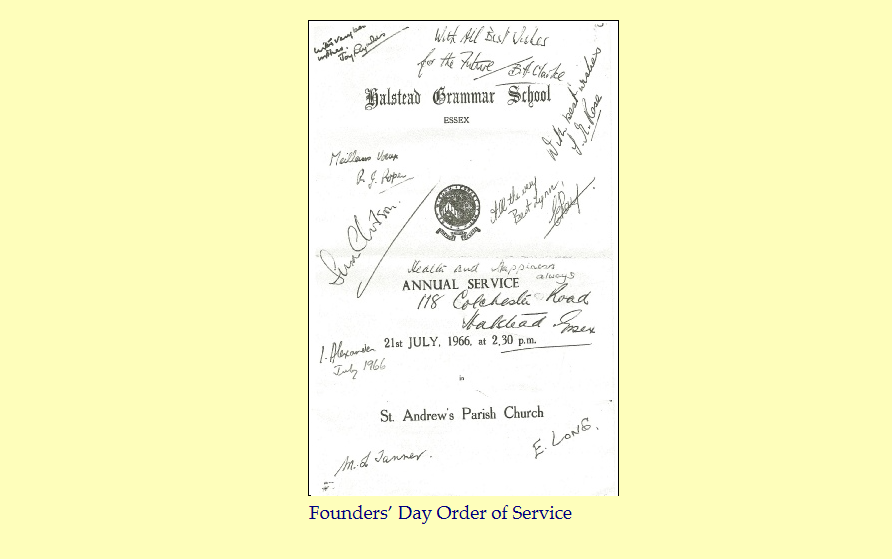 With very best
wishes.
Joy Reynolds
With All Best Wishes
for the Future
B.A. Clarke
Halstead Grammar School
ESSEX
With best wishes
J. R. Rose
Meilleurs Vœux
R. J. Roper
All the very
Best Lynn,
Health and Happiness
always
ANNUAL SERVICE
118 Colchester Road
Halstead Essex
21st JULY, 1966, at 2.30 p.m.
I. Alexander
July 1966
in
St. Andrew's Parish Church
E. LONG.
M. L. Tanner.
Founders' Day Order of Service